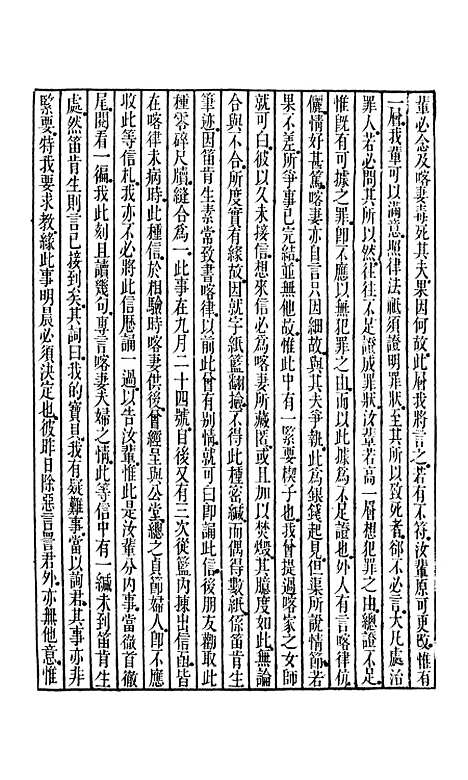 輩必念及喀妻毒死其夫果因何故此層我將言之若有不符汝輩原可更改惟有
一層我輩可以滿意照律法祇須證明罪狀至其所以致死者郤不必言大凡處治
罪人若必問其所以然往往不足證成罪狀汝輩若高一層想犯罪之由總證不足
惟旣有可據之罪卽不應以無犯罪之由故而此可據爲不足證也外人有言喀律伉
儷情好甚篤喀妻亦自言只因細故與其夫爭執此爲銀錢起見但渠所說情節若
果不差所爭事已完結並無他故惟此中有一緊要楔子也我曾提過喀家之女師
就可曰彼以久未接信想來信必爲喀妻所藏匿或以焚燬其臆度如此無論
合與不合所度實有緣故因就字紙籃翻撿不得此種密緘而偶得數紙係笛肯生
筆迹因笛肯生素常致書喀律以前此曾有別情就可曰卽誦此信後朋友勸取此
種零碎尺牘縫合爲一此事在九月二十四號自後又有三次從籃內揀出信函皆
在喀律未病時此種信於相驗時喀妻供後曾經呈與公堂總之貞節婦人卽不應
收此等信札我亦不必將此信歷誦一過以告汝輩惟此是汝輩分內事當徹首徹
尾閱看一徧我此刻且讀幾句專言喀妻夫婦之情此等信中有一緘未到笛肯生
處然笛肯生則言已接到矣其詞曰我的寶貝我有疑難事當以詞君其事亦非
緊要特我要求教緣此事明晨必須決定也彼昨日除惡言詈君外亦無他意惟